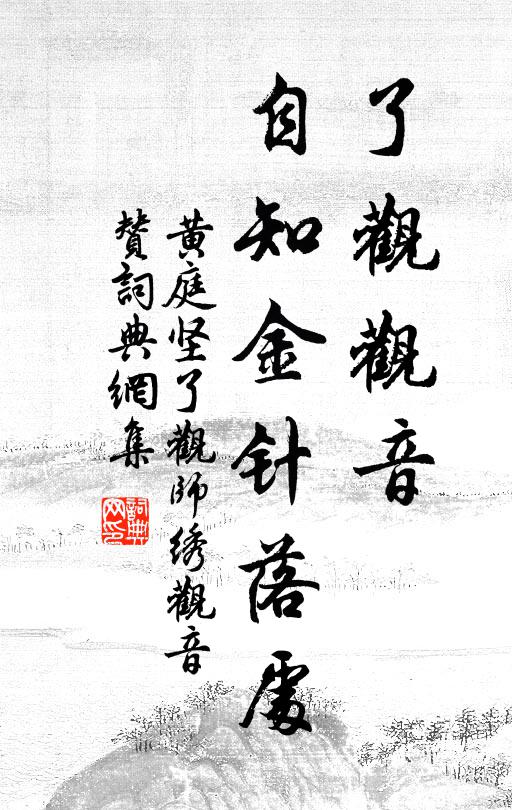 了觀觀音
自知金针落處
黄庭坚了觀師绣觀音
赞詞典網集
詞典
网印